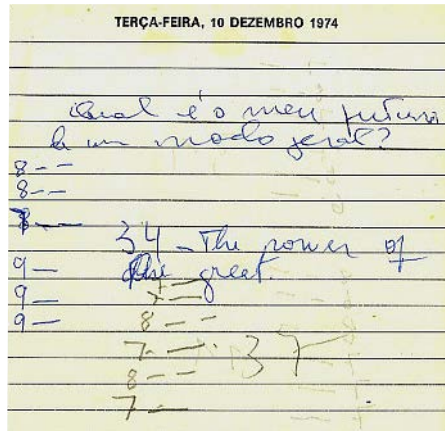 TERÇA-FEIRA, 10 DEZEMBRO 1974
Qual é o meu futuro
de um modo geral?
8 - -
8 - -
8 - -
34 - The power of
9 — the great.
9 —
9 —
8 - -
7 - — 37
8 - -
7 —